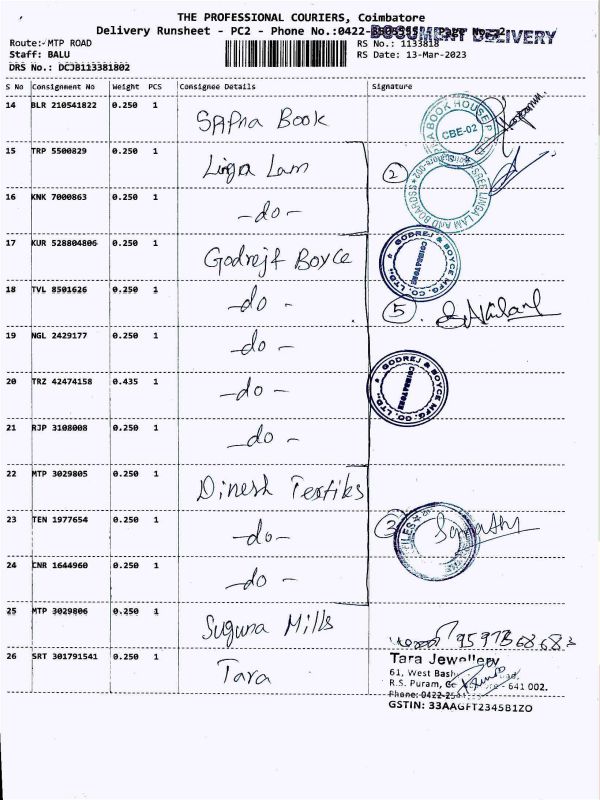 THE PROFESSIONAL COURIERS, Coimbatore
Delivery Runsheet - PC2 - Phone No.:0422-
DOCUMENT DELIVERY
Route: MTP ROAD
RS No.: 1133818
Staff: BALU
RS Date: 13-Mar-2023
DRS No.: DCJB113381802
S No Consignment No Weight PCS Consignee Details Signature
14 BLR 210541822 0.250 1 Sapna Book
CBE-02
15 TRP 5500829 0.250 1 Linga Lam
2
16 KNK 7000863 0.250 1 -do-
SREE LINGA LAM AND BOARDSS
17 KUR 528804806 0.250 1 Godrejf Boyce
GODREJ & BOYCE MFG. CO. LTD., COIMBATORE
18 TVL 8501626 0.250 1 -do-
5
19 NGL 2429177 0.250 1 -do-
20 TRZ 42474158 0.435 1 -do-
GODREJ & BOYCE MFG. CO. LTD., COIMBATORE
21 RJP 3108008 0.250 1 -do-
22 MTP 3029805 0.250 1 Dinesh Textiles
23 TEN 1977654 0.250 1 -do-
3
24 CNR 1644960 0.250 1 -do-
25 MTP 3029806 0.250 1 Suguna Mills
26 SRT 301791541 0.250 1 Tara
Tara Jewellery
61, West
R.S. Puram, - 641 002.
Phone: 0422-
GSTIN: 33AAGFT2345B1ZO